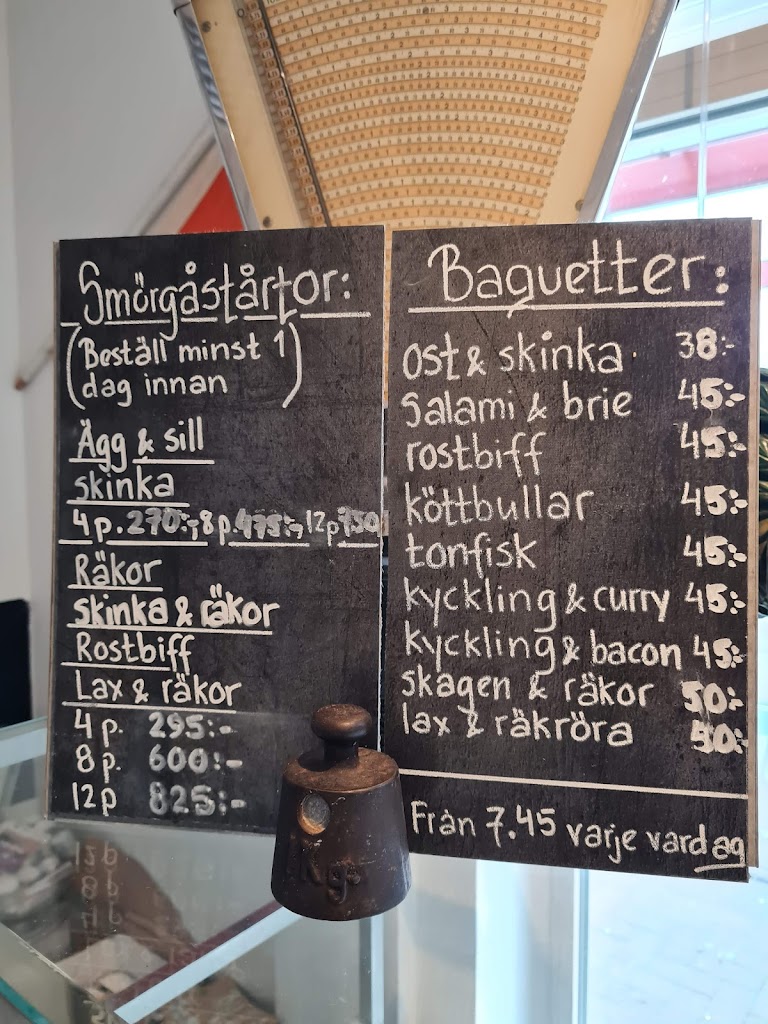 Smörgåstårtor:
(Beställ minst 1
dag innan)
Ägg & sill
skinka
4 p. 270:-, 8 p. 475:-, 12p 750
Räkor
skinka & räkor
Rostbiff
Lax & räkor
4 p. 295:-
8 p. 600:-
12p 825:-
Baguetter:
ost & skinka 38:-
Salami & brie 45:-
rostbiff 45:-
köttbullar 45:-
tonfisk 45:-
kyckling & curry 45:-
kyckling & bacon 45:-
skagen & räkor 50:-
lax & räkröra 50:-
Från 7.45 varje vardag
Kg.